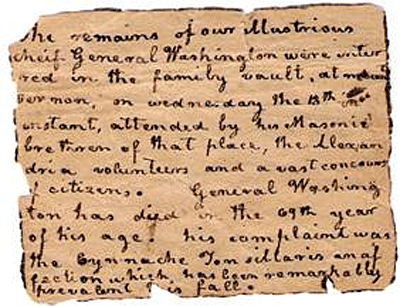 he remains of our Illustrious
cheif General Washington were inter
red in the family vault, at mount
vernon, on wednesday the 18th
instant, attended by his Masonic
brethren of that place, the Alexan
dria volunteers and a vast concours
of citizens. General Washing
ton has died in the 69th year
of his age. his complaint was
the Cynnache Tonsillaris an af
fection which has been remarkably
prevalent this fall.